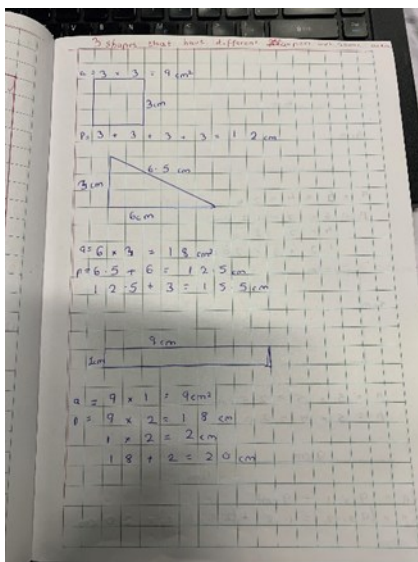 3 shapes that have different
a = 3 × 3 = 9 cm²
3cm
P = 3 + 3 + 3 + 3 = 12 cm
6.5 cm
3cm
6cm
a = 6 × 3 = 18 cm²
P = 6.5 + 6 = 12.5 cm
12.5 + 3 = 15.5 cm
9cm
1cm
a = 9 × 1 = 9cm²
p = 9 × 2 = 18 cm
1 × 2 = 2 cm
18 + 2 = 20 cm